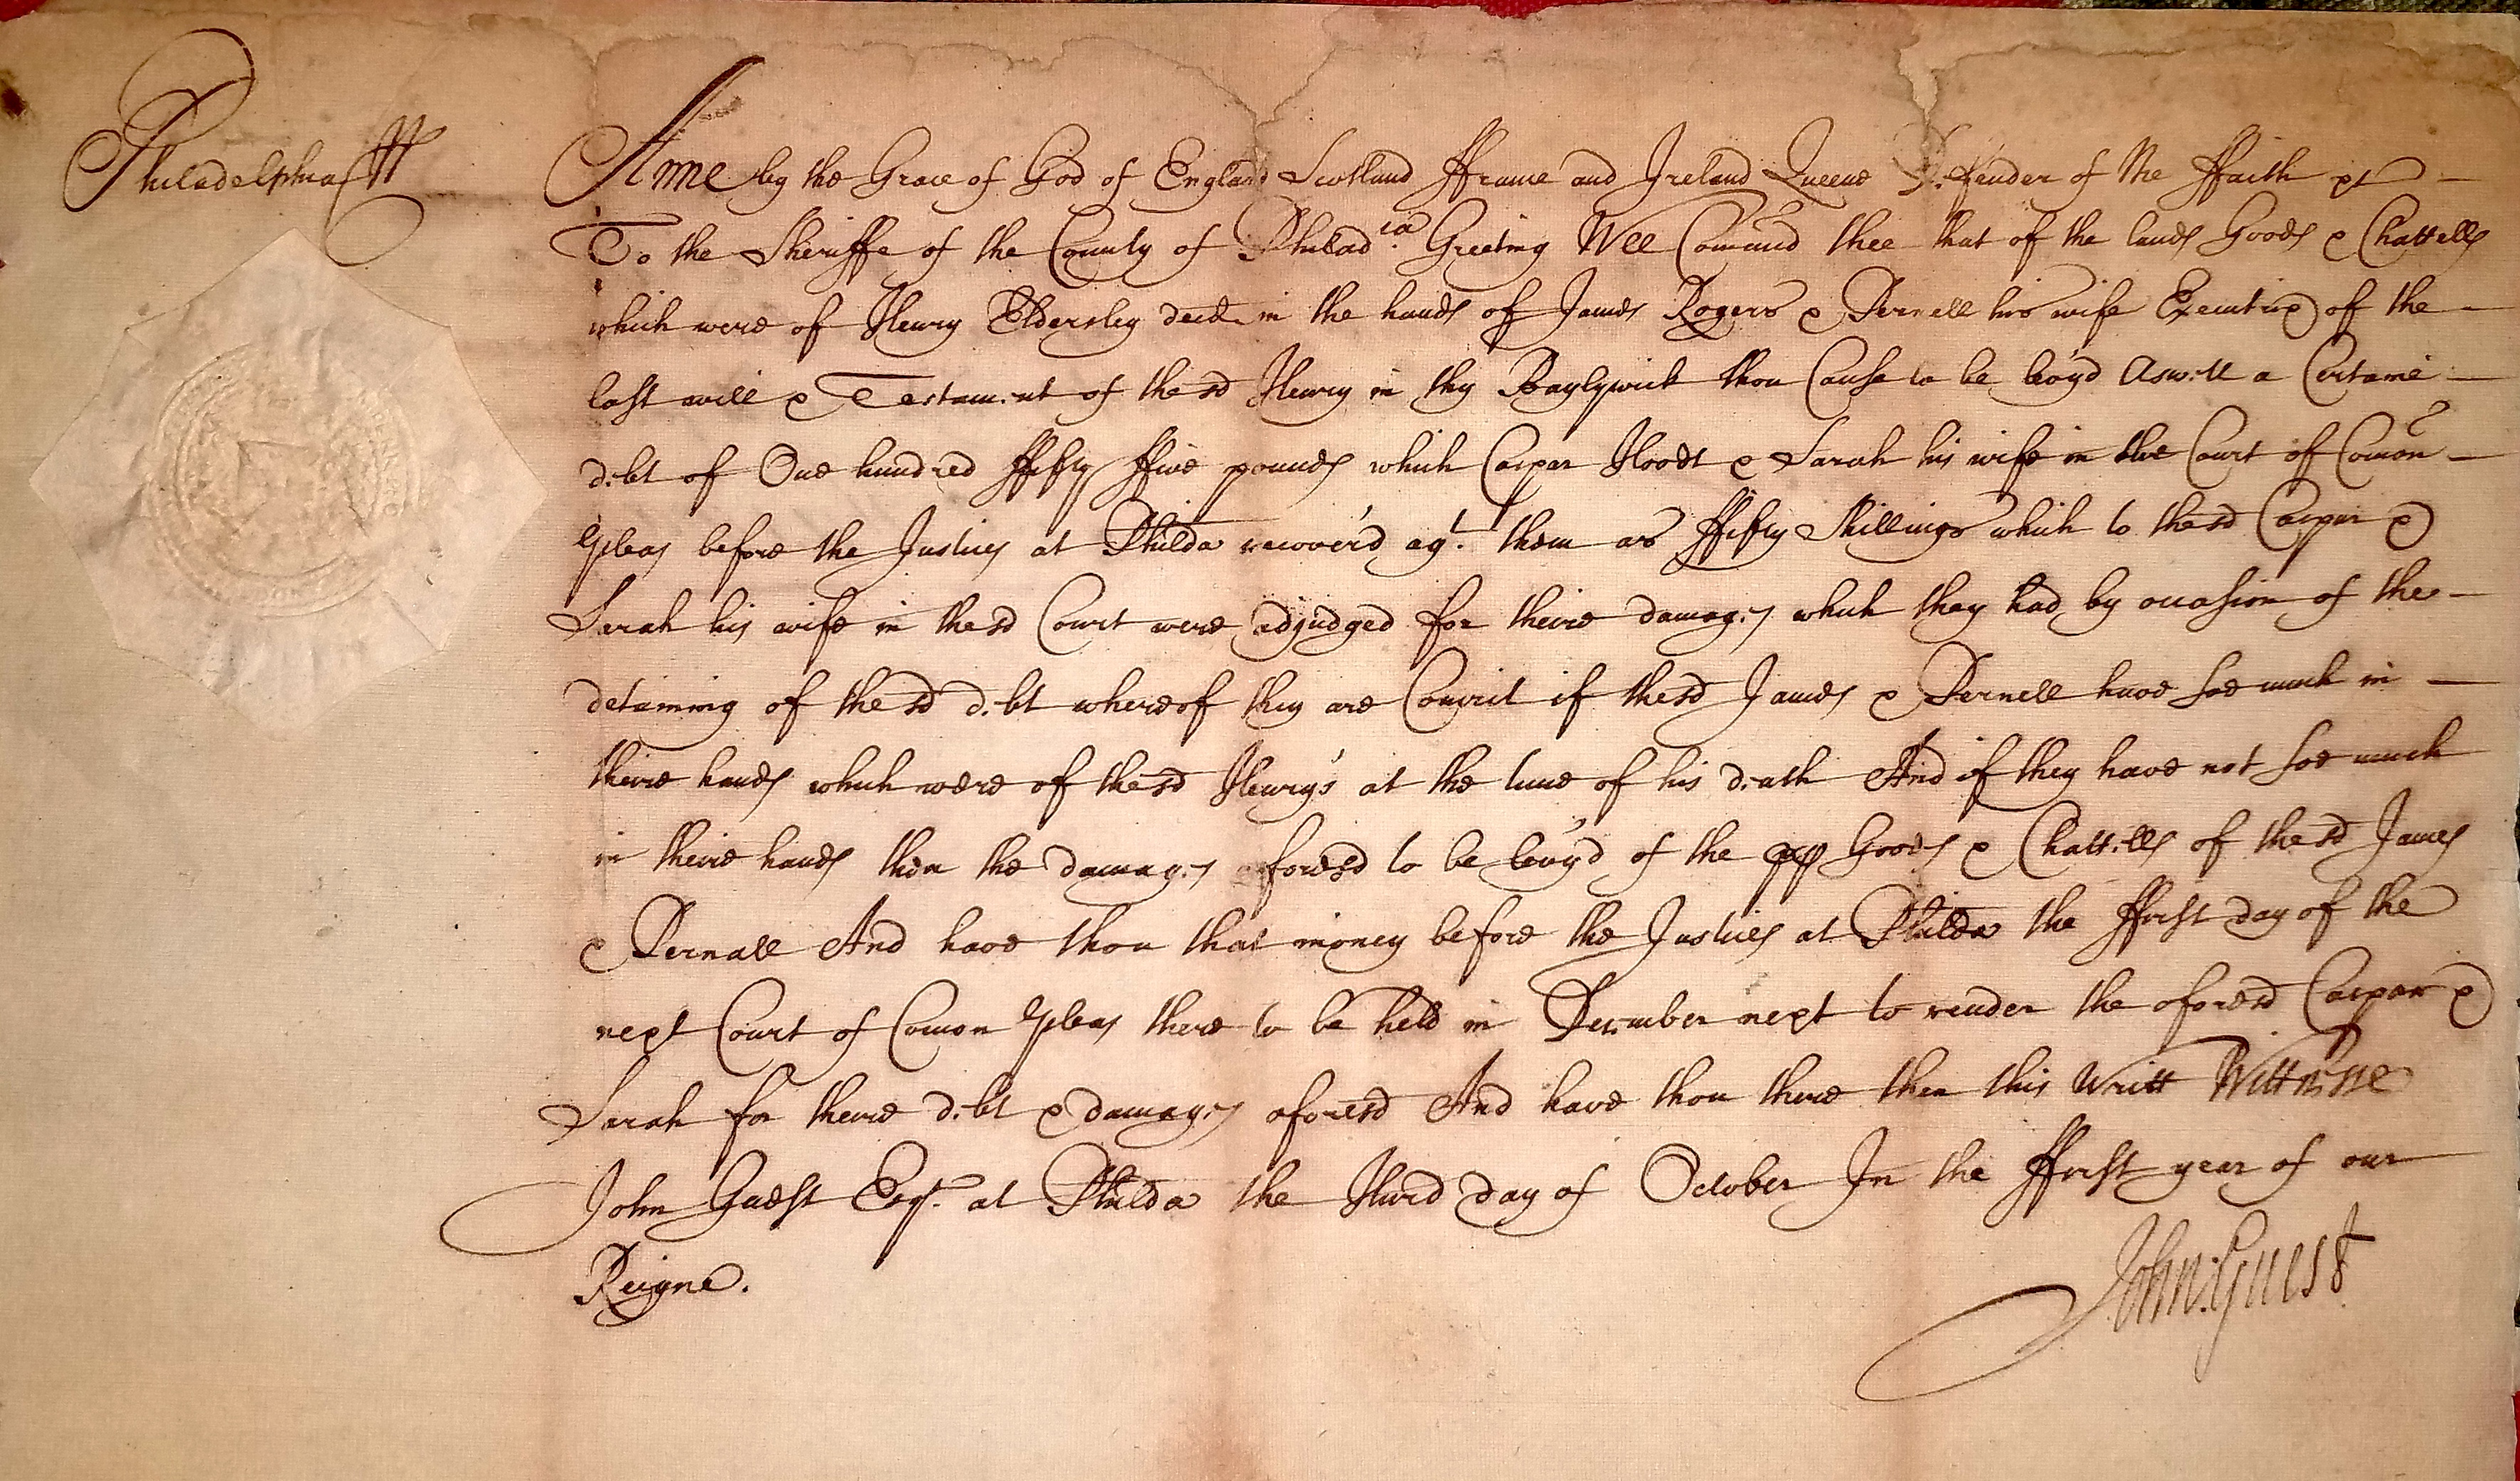 Philadelphia ss
Anne by the Grace of God of England Scotland ffrance and Ireland Queene Defender of the ffaith &c
To the Sheriffe of the County of Philad.ia Greeting Wee Comand thee that of the lands Goods & Chattells
which were of Henry Eldersley decd in the hands of James Rogers & Pernell his wife Executrix of the
last will & Testament of the sd Henry in thy Baylywick thou Cause to be levyd aswell a Certaine
debt of One hundred ffifty ffive pounds which Caspar Hoodt & Sarah his wife in the Court of Comon
Pleas before the Justices at Philda recover'd agt. them as ffifty Shillings which to the sd Caspar &
Sarah his wife in the sd Court were adjudged for theire damages which they had by occasion of the
detaining of the sd debt whereof they are Convict if the sd James & Pernell have soe much in
theire hands which were of the sd Henry's at the time of his death And if they have not soe much
in theire hands then the damages aforesd to be levy'd of the Goods & Chattells of the sd James
& Pernall And have thou that money before the Justices at Philda the ffirst day of the
next Court of Comon Pleas there to be held in December next to render the aforesd Caspar &
Sarah for theire debt & damages aforesd And have thou there then this Writt Wittnesse
John Guest Esqr. at Philda the Third day of October In the ffirst year of our
Reigne.
John: Guest